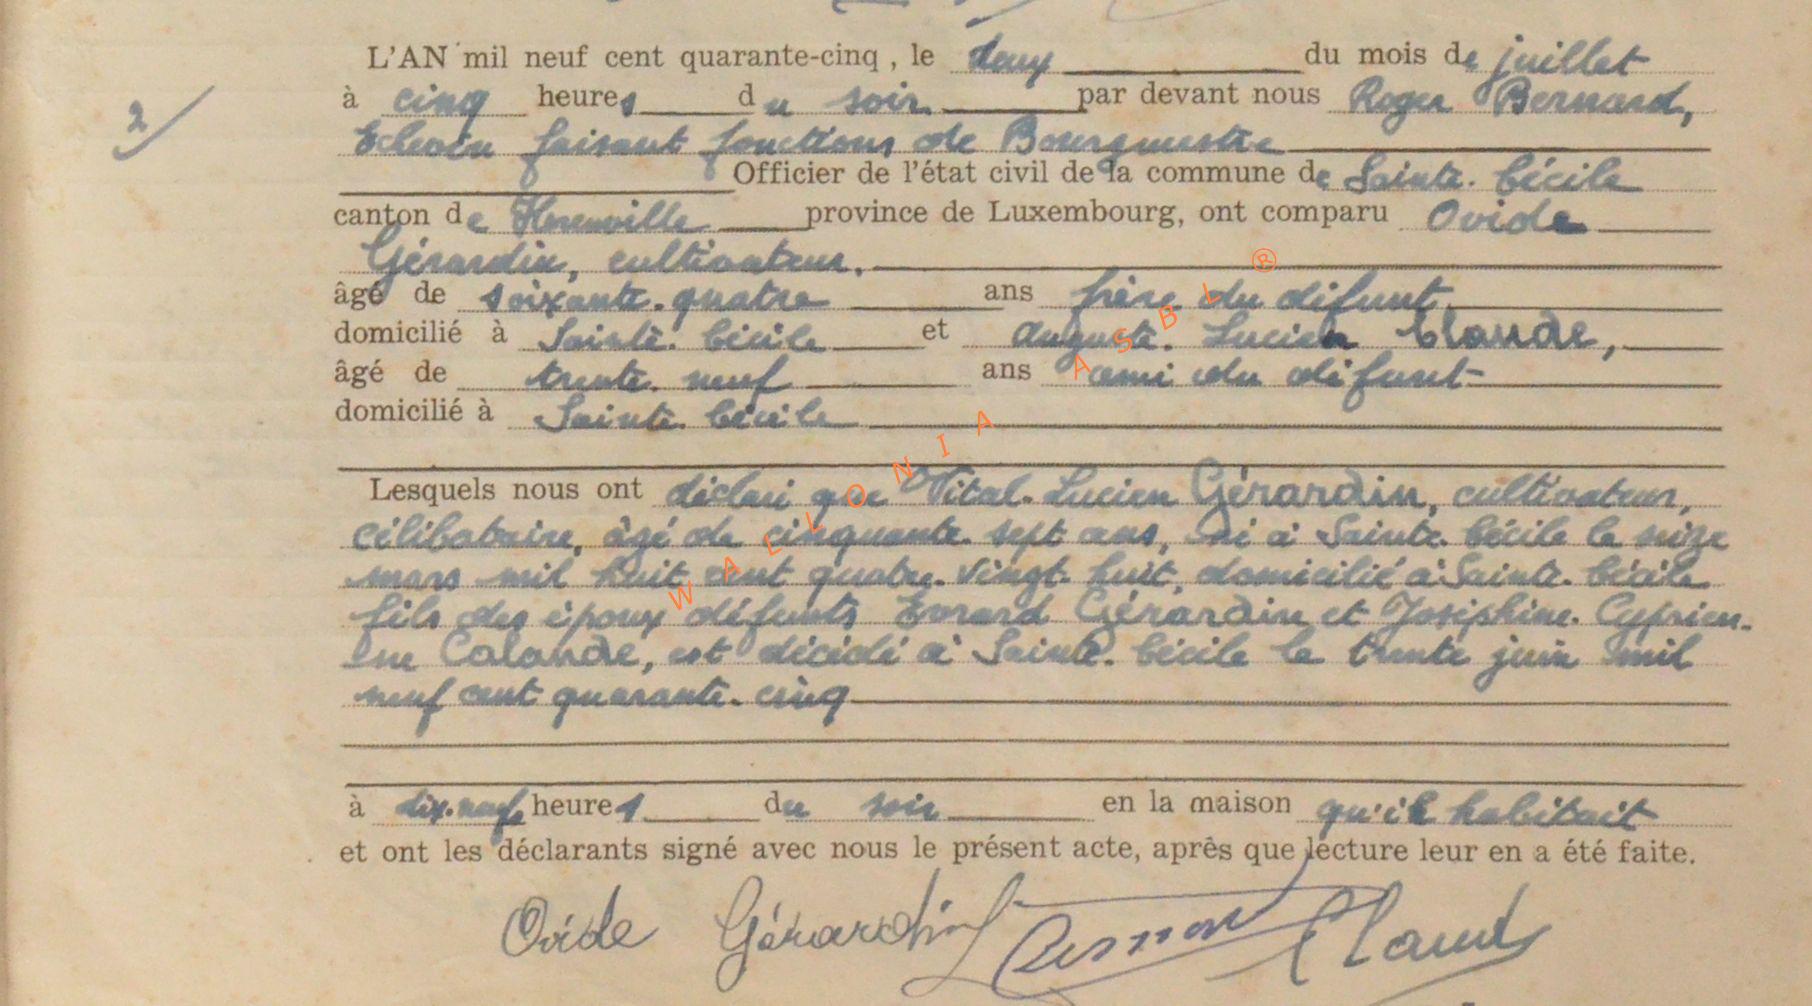 L'AN mil neuf cent quarante-cinq, le deux du mois de juillet
2/ à cinq heures du soir par devant nous Roger Bernard,
Echevin faisant fonctions de Bourgmestre
Officier de l'état civil de la commune de Sainte-Cécile
canton de Florenville province de Luxembourg, ont comparu Ovide
Gérardin, cultivateur,
âgé de soixante-quatre ans frère du défunt
domicilié à Sainte-Cécile et Auguste-Lucien Claude,
âgé de trente-neuf ans ami du défunt
domicilié à Sainte-Cécile
Lesquels nous ont déclaré que Vital-Lucien Gérardin, cultivateur,
célibataire, âgé de cinquante-sept ans, né à Sainte-Cécile le seize
mars mil huit cent quatre-vingt-huit, domicilié à Sainte-Cécile
fils des époux défunts Evrard Gérardin et Joséphine-Cyprien-
ne Calande, est décédé à Sainte-Cécile le trente juin mil
neuf cent quarante-cinq
à dix-neuf heures du soir en la maison qu'il habitait
et ont les déclarants signé avec nous le présent acte, après que lecture leur en a été faite.
Ovide Gérardin Claude
WALLONIA ASBL ®